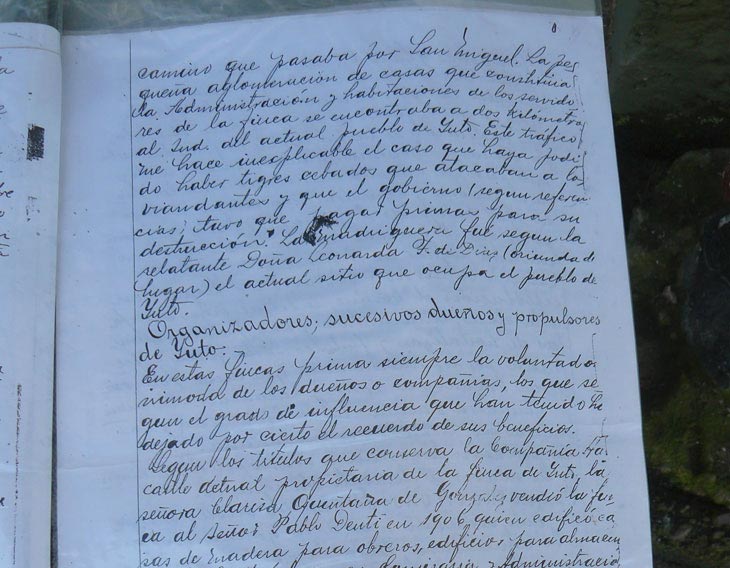 camino que pasaba por San Miguel. La pe
queña aglomeración de casas que constituía
la Administración y habitaciones de los servido
res de la finca se encontraba a dos kilómetro
al Sud. del actual pueblo de Yuto. Este tráfico
me hace inexplicable el caso que haya podi
do haber tigres cebados que atacaban a lo
viandantes y que el gobierno (segun referen
cias) tuvo que pagar primas para su
destrucción. La madriguera fué segun la
relatante Doña Leonarda F. de Dias (oriunda de
lugar) el actual sitio que ocupa el pueblo de
Yuto.
Organizadores; sucesivos dueños y propulsores
de Yuto.
En estas fincas prima siempre la voluntad o
nimoda de los dueños o compañías, los que se
gun el grado de influencia que han tenido ha
dejado por cierto el recuerdo de sus beneficios.
Segun los titulos que conserva la Compañia
actual propietaria de la finca de Yuto, la
señora Clarisa Quintana de Gonzalez vendió la fin
ca al señor Pablo Denti en 1906, quien edificó ca
sas de madera para obreros, edificios para almacen
y Administració